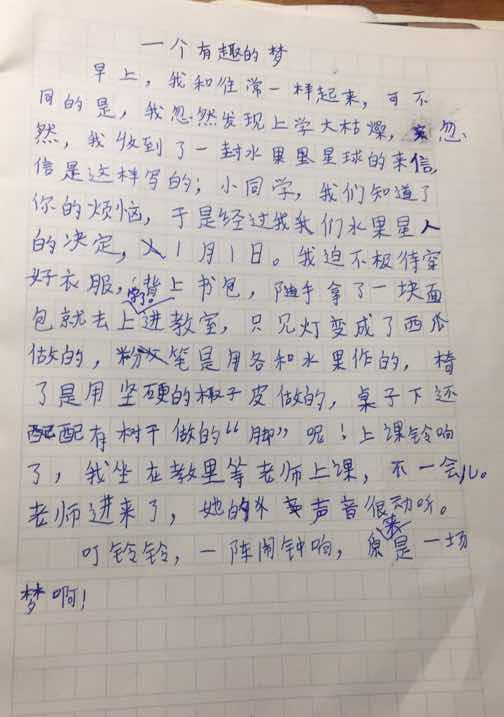 一个有趣的梦
早上，我和往常一样起来，可不
同的是，我忽然发现上学大枯燥，忽
然，我收到了一封水果星球的来信，
信是这样写的；小同学，我们知道了
你的烦恼，于是经过我们水果星人
的决定，1月1日。我迫不极待穿
好衣服，背上书包，随手拿了一块面
包就去上学了。进教室，只见灯变成了西瓜
做的，粉笔是用各和水果作的，椅
了是用坚硬的椰子皮做的，桌子下还
配有树干做的“脚”呢！上课铃响
了，我坐在教里等老师上课，不一会儿。
老师进来了，她的声音很动听。
叮铃铃，一阵闹钟响，原来是一场
梦啊！